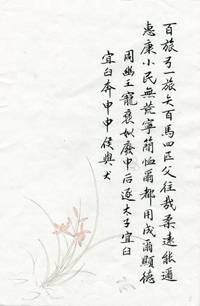 百旅弓一旅矢百馬四匹父往哉柔遠能邇
惠康小民無荒寧簡恤爾都用成爾顯德
周幽王寵褒姒廢申后逐太子宜臼
宜臼奔申申侯與犬